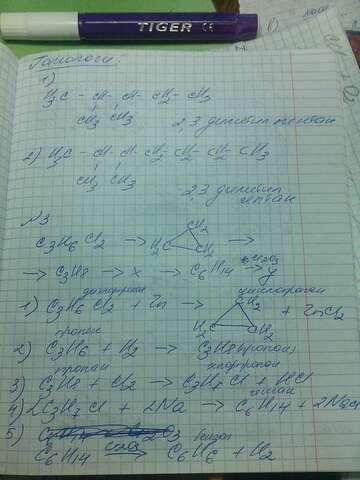 TIGER CE
Гомологи:
1)
H3C - CH - CH - CH2 - CH3
CH3 CH3
2,3 диметил пентан
2) H3C - CH - CH - CH2 - CH2 - CH2 - CH3
CH3 CH3
2,3 диметил
гептан
№3
CH2
C3H6Cl2 → H2C CH2 →
→ C3H8 → x → C6H14 → y
дихлорпропан циклопропан
1) C3H6Cl2 + Zn → H2C CH2 CH2 + ZnCl2
пропен
2) C3H6 + H2 → C3H8 (пропан)
пропан хлорпропан
3) C3H8 + Cl2 → C3H7Cl + HCl
гексан
4) 2C3H7Cl + 2Na → C6H14 + 2NaCl
5) бензол
C6H14 → C6H6 + H2